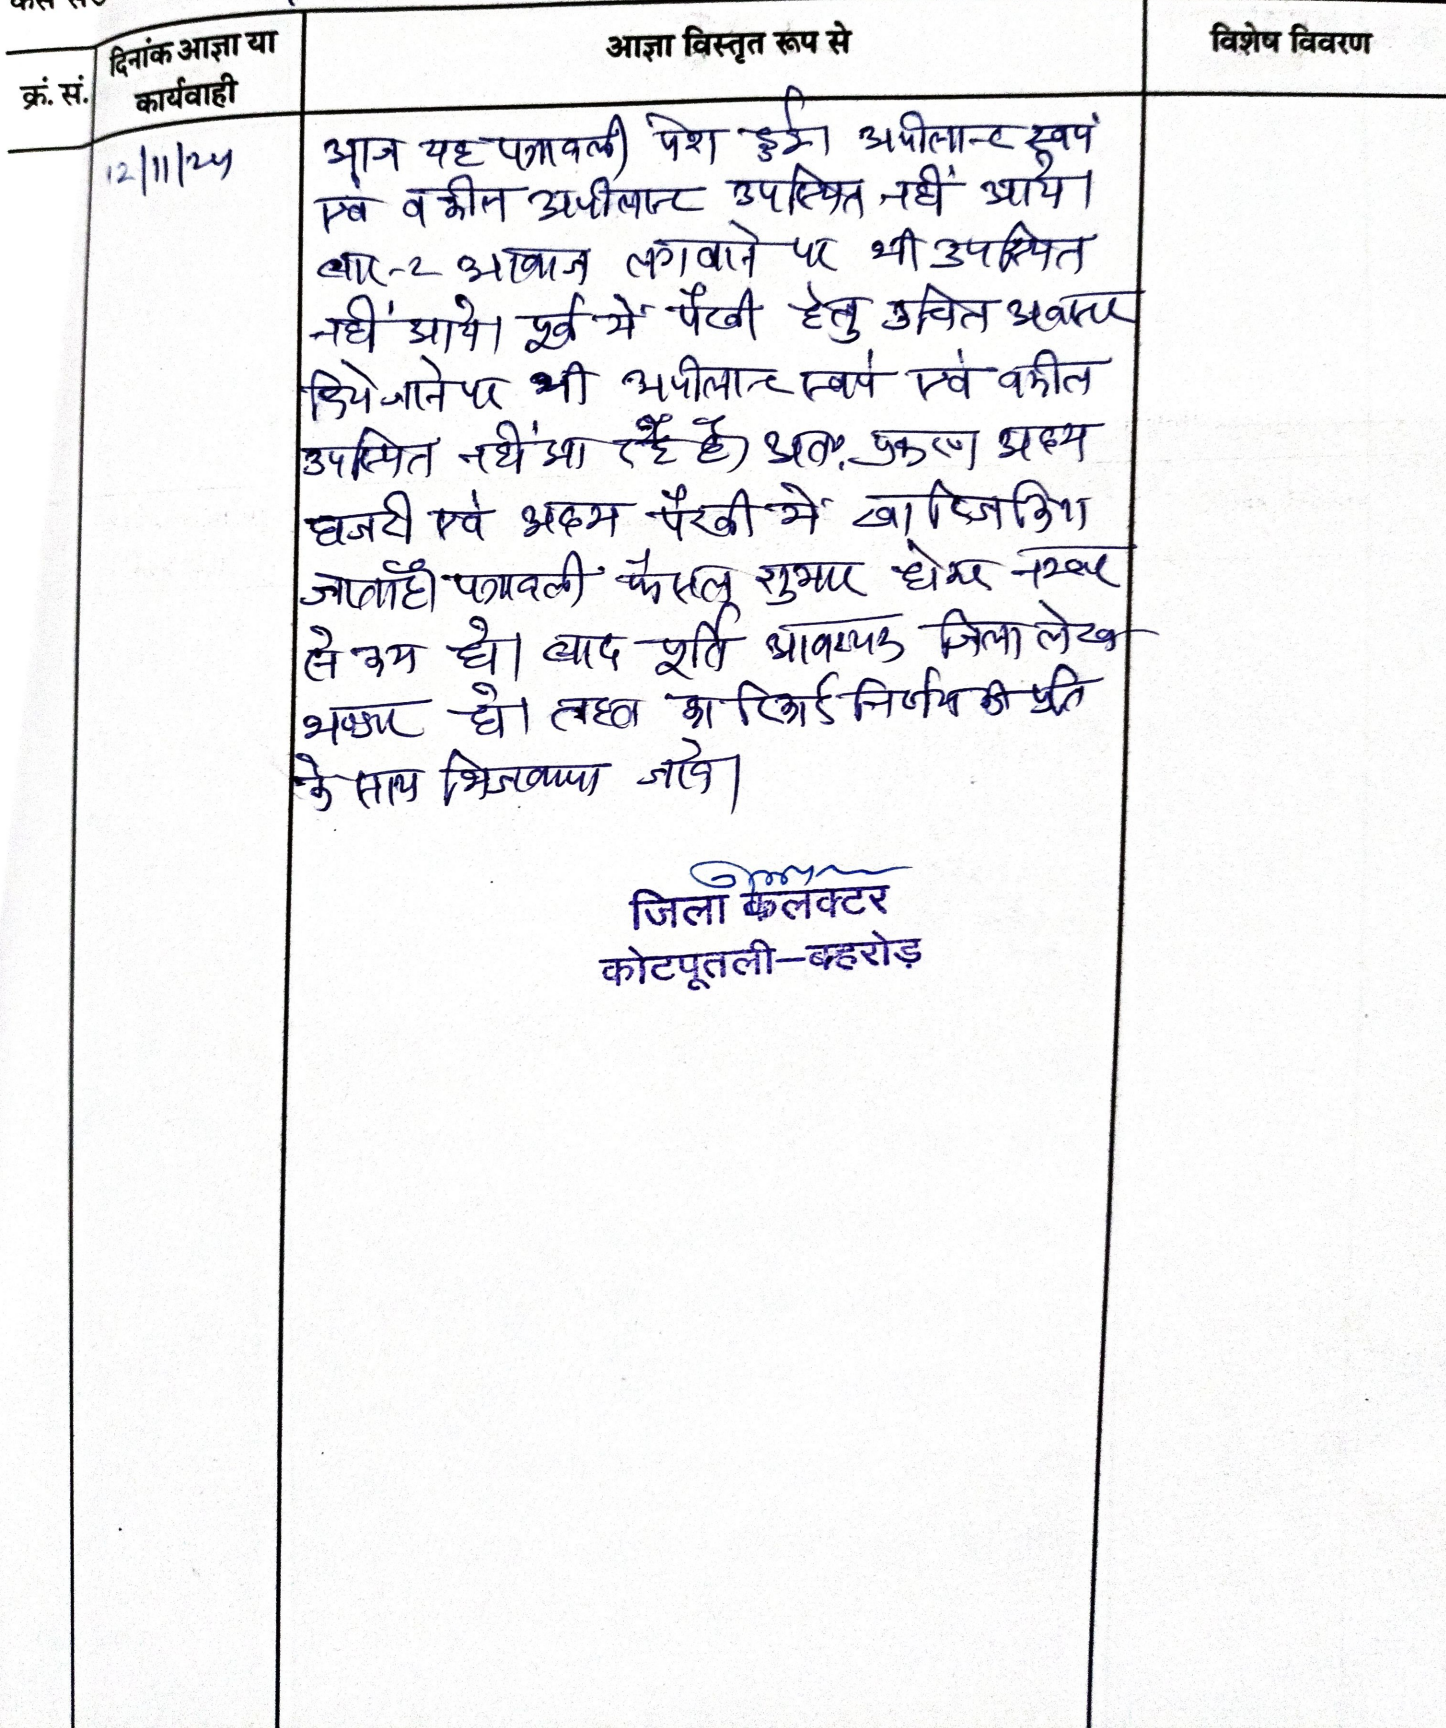 केस सं०
क्रं. सं.
दिनांक आज्ञा या
कार्यवाही
आज्ञा विस्तृत रूप से
विशेष विवरण
12/11/24
आज यह पत्रावली पेश हुई। अपीलान्ट स्वयं
एवं वकील अपीलान्ट उपस्थित नहीं आये।
बार-2 आवाज लगवाने पर भी उपस्थित
नहीं आये। पूर्व में पैरवी हेतु उचित अवसर
दिये जाने पर भी अपीलान्ट स्वयं एवं वकील
उपस्थित नहीं आ रहे हैं। अतः प्रकरण अदम
हाजरी एवं अदम पैरवी में खारिज किया
जाता है। पत्रावली फैसल शुमार होकर नम्बर
से कम हो। बाद पूर्ति आवश्यक जिला लेख
भण्डार हो। तहत का रिकार्ड निर्णय की प्रति
के साथ भिजवाया जावे।
जिला कलक्टर
कोटपूतली–बहरोड़